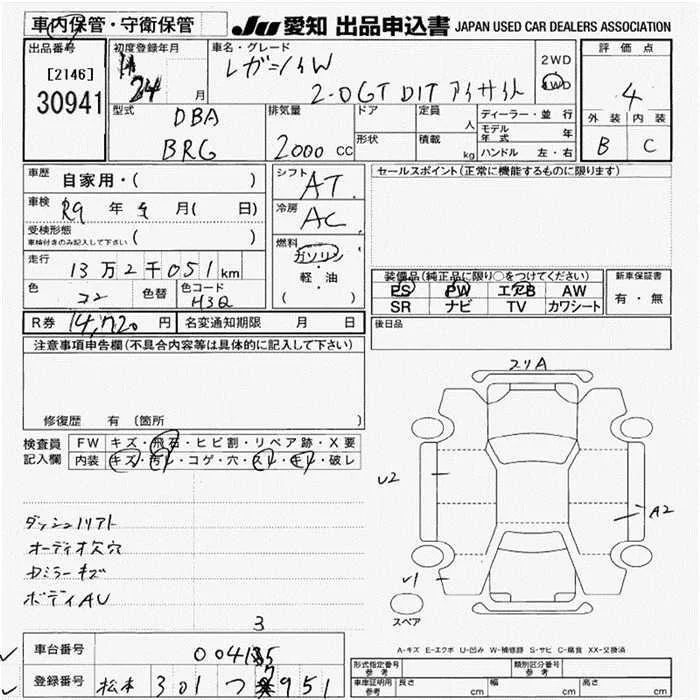 車内保管・守衛保管
JU 愛知 出品申込書 JAPAN USED CAR DEALERS ASSOCIATION
出品番号
[2146]
30941
初度登録年月
H
24 月
車名・グレード
レガシィW
2.0GT DIT アイサイト
2WD
4WD
評価点
4
外装 内装
B C
型式
DBA
BRG
排気量
2000 CC
ドア
形状
定員
人
積載
kg
ディーラー・並行
モデル年式 年
ハンドル 左・右
車歴 自家用・( )
車検 R9 年 月( 日)
受検形態
車検付きのみ記入して下さい ( )
走行
13万2千051km
色
色替
色コード
H3Q
シフト
AT
冷房
AC
燃料
ガソリン
軽・油
( )
セールスポイント(正常に機能するものに限ります)
装備品(純正品に限り○をつけてください)
PS PW エアB AW
SR ナビ TV カワシート
新車保証書
有・無
後日品
R券 14,720 円
名変通知期限 月 日
注意事項申告欄(不具合内容等は具体的に記入して下さい)
修復歴 有 (箇所 )
検査員
記入欄
FW キズ・飛石・ヒビ割・リペア跡・X要
内装 キズ・汚レ・コゲ・穴・スレ・キレ・破レ
ダッシュソリアト
オーディオ欠穴
カミラーキズ
ボディAU
コリA
U2
A2
U1
スペア
A-キズ E-エクボ U-凹み W-補修跡 S-サビ C-腐食 XX-交換済
3
車台番号
登録番号 松本 301
951
形式指定番号
参考
類別区分番号
参考
車庫証明用
参考
長さ cm
幅 cm
高さ cm